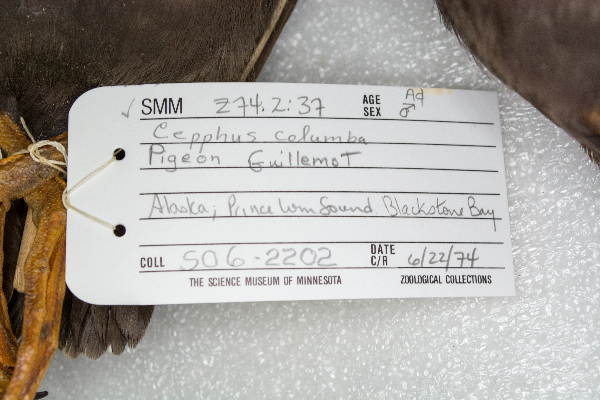 ✓ SMM Z74.2:37 AGE Ad
SEX ♂
Cepphus columba
Pigeon Guillemot
Alaska; Prince Wm Sound Blackstone Bay
COLL SO6-2202 DATE C/R 6/22/74
THE SCIENCE MUSEUM OF MINNESOTA ZOOLOGICAL COLLECTIONS